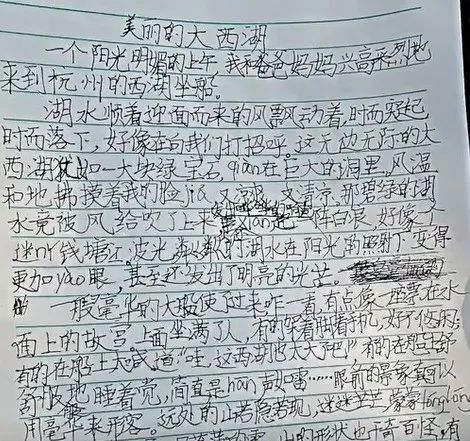 美丽的大西湖
一个阳光明媚的上午,我和爸爸妈妈兴高采烈地
来到杭州的西湖坐船。
湖水顺着迎面而来的风飘动着,时而突起
时而落下,好像在向我们打招呼。这无边无际的大
西湖犹如一大块绿宝石,qian在巨大的洞里。风温
和地拂摸着我们的脸jia,又凉爽,又清凉。那碧绿的湖
水竟被风给吹了上来 阵白浪,好像一个
迷你钱塘江。波光粼粼的湖水在阳光的照射下变得
更加yao眼,甚至还发出了明亮的光芒。
一艘豪华的大船使了过来,咋一看,有点像一座立在水
面上的故宫。上面坐满了人,有的笑着聊着手机,好不悠乐;
有的在船上大喊道“哇,这西湖也太大了吧!”有的在船上舒
舒服服地睡着觉,简直是han声如雷……眼前的景象真可以
用豪华来形容。远处的山若隐若现,迷迷茫茫,蒙蒙longlong
的形状也千奇百怪,有